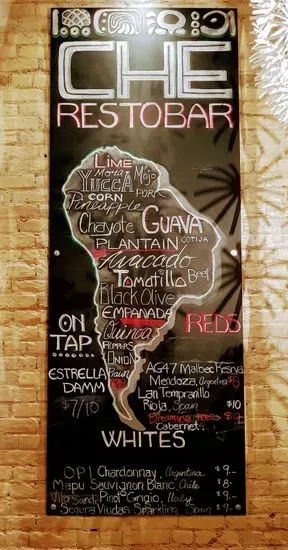 CHE
RESTOBAR
LIME
Mora
YuccA Mojo
PORK
CORN
Pineapple
Chayote GUAVA
PLANTAIN COTIJA
Avacado
Tomatillo Beef
Black Olive
EMPANADA
Quinoa
PEPPERS
ONION
Prawn
ON
TAP
ESTRELLA
DAMM
$7/10
REDS
AG47 Malbec
Mendoza, Argentina
Lan Tempranillo
Rioja, Spain $10
Cabernet
WHITES
O.P.I Chardonnay, Argentina $9-
Mapu Sauvignon Blanc, Chile $8-
Villa Sandi, Pinot Grigio, Italy $9-
Segura Viudas Sparkling, Spain $9-